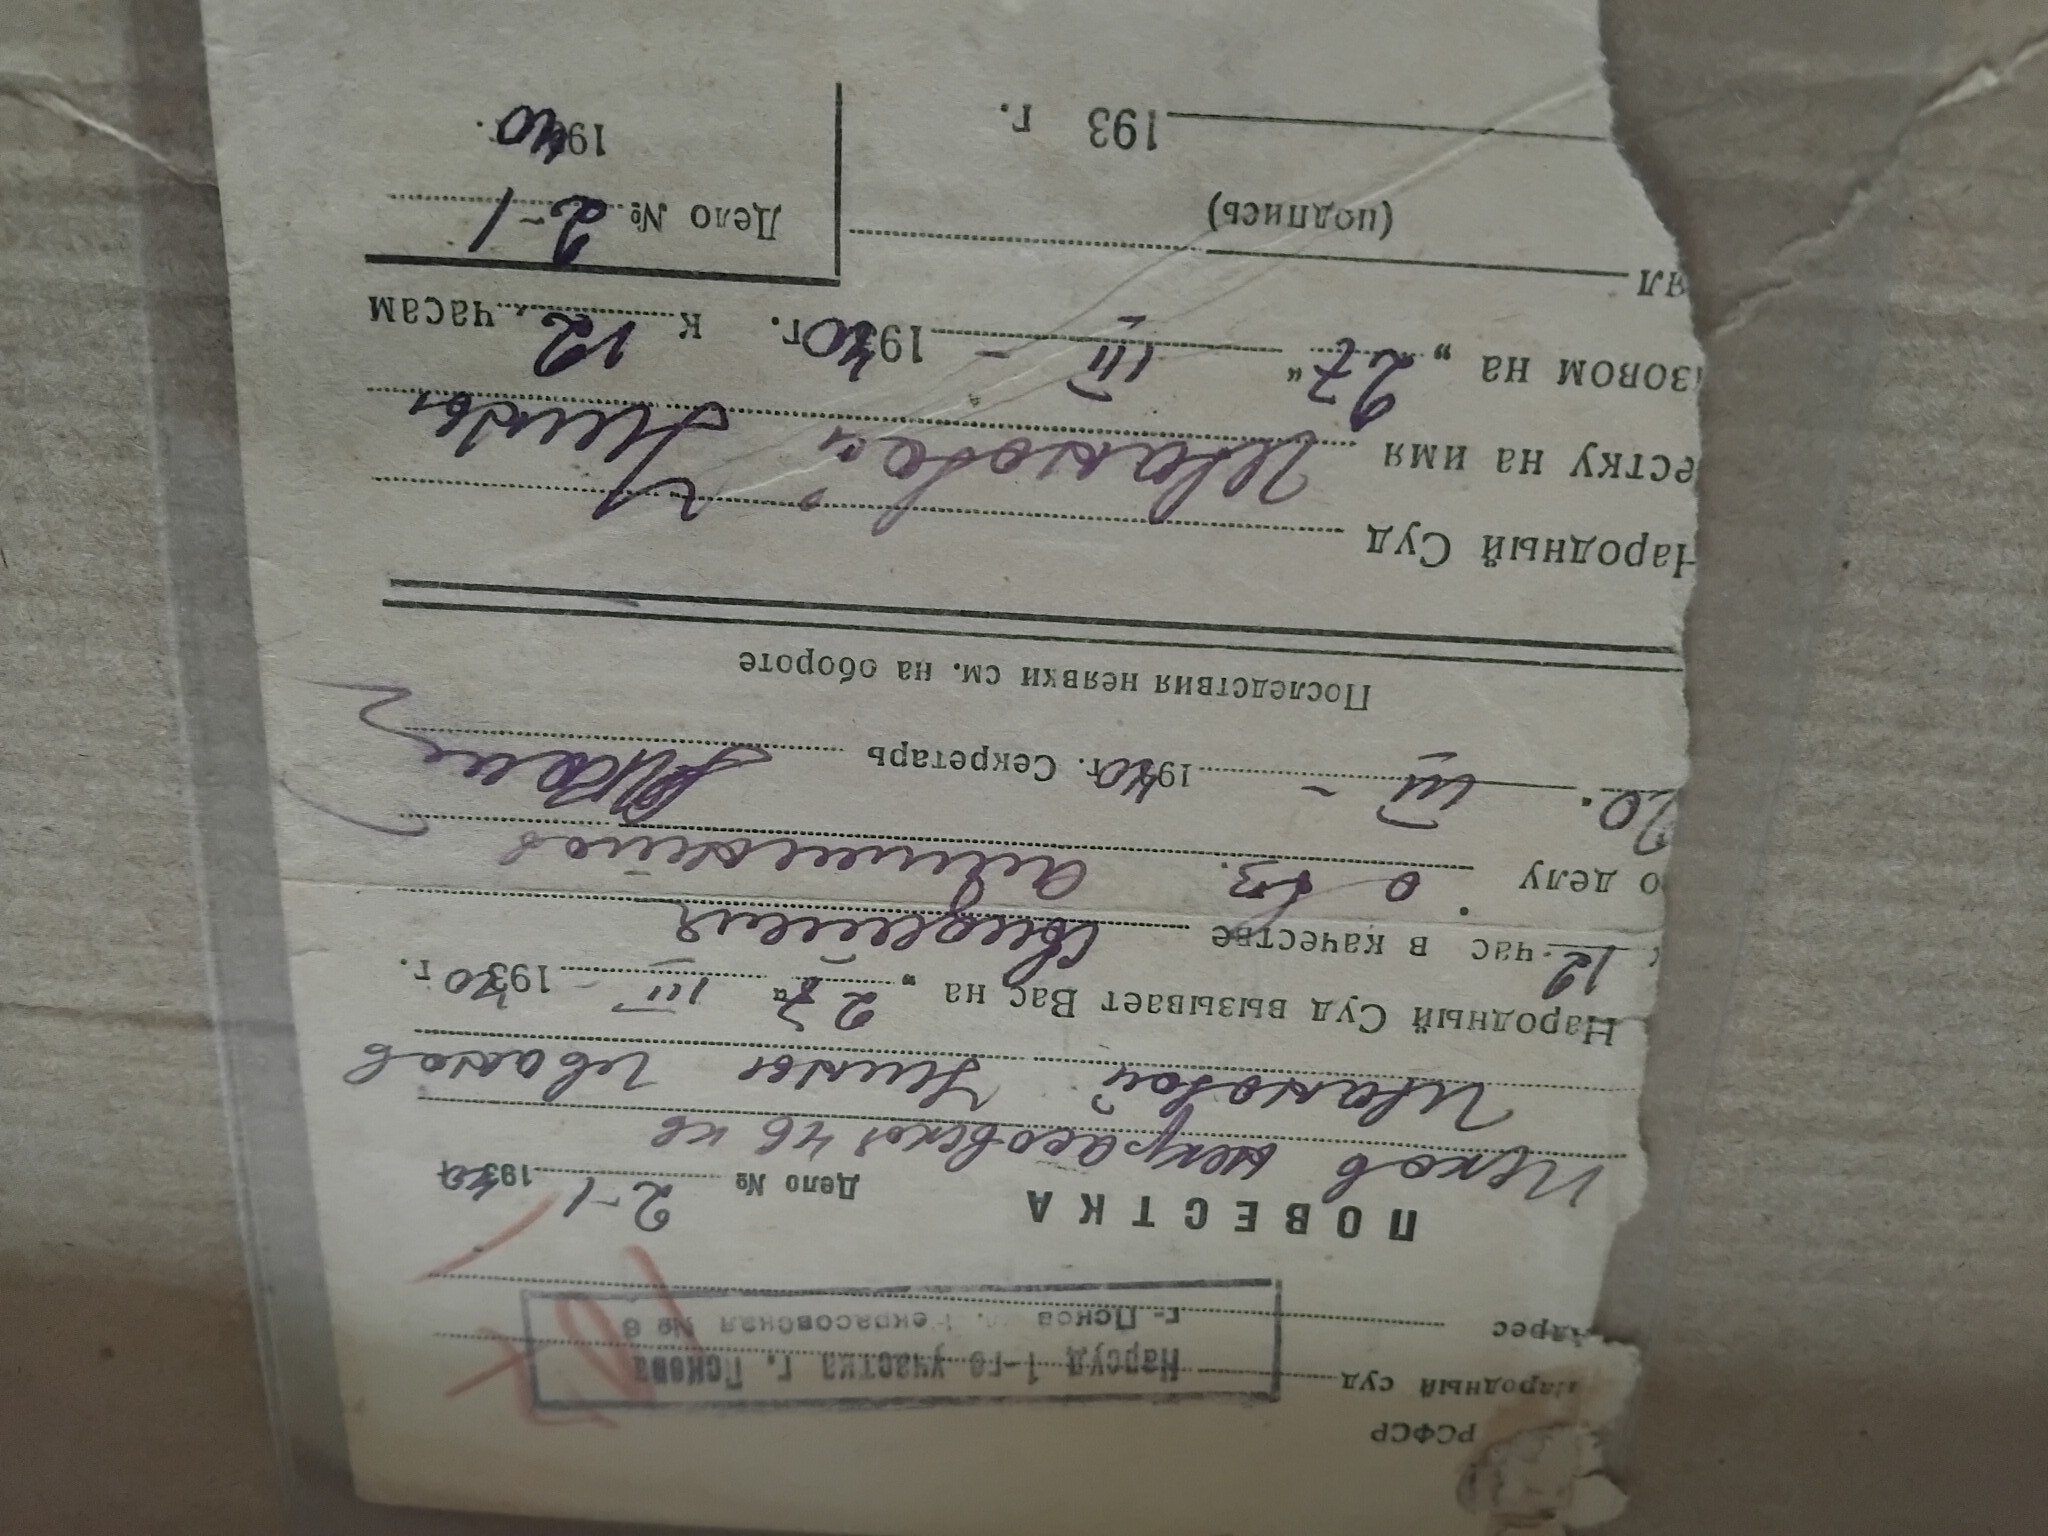 РСФСР
Народный суд Нарсуд 1-го участка г. Пскова
Адрес г. Псков Некрасовская № 8
ПОВЕСТКА Дело № 2-1 1940
Псков Некрасовская 46 кв
Ивановой Нины Иванов
Народный Суд вызывает Вас на „27“ III – 1940 г.
12 час в качестве свидетеля
о делу о вз. алиментов
20 III – 1940 г. Секретарь
Последствия неявки см. на обороте
Народный Суд
естку на имя Ивановой Нины
зовом на „27“ III – 1940 г. к 12 часам
ял
(подпись)
Дело № 2-1
193 г.
1940 г.